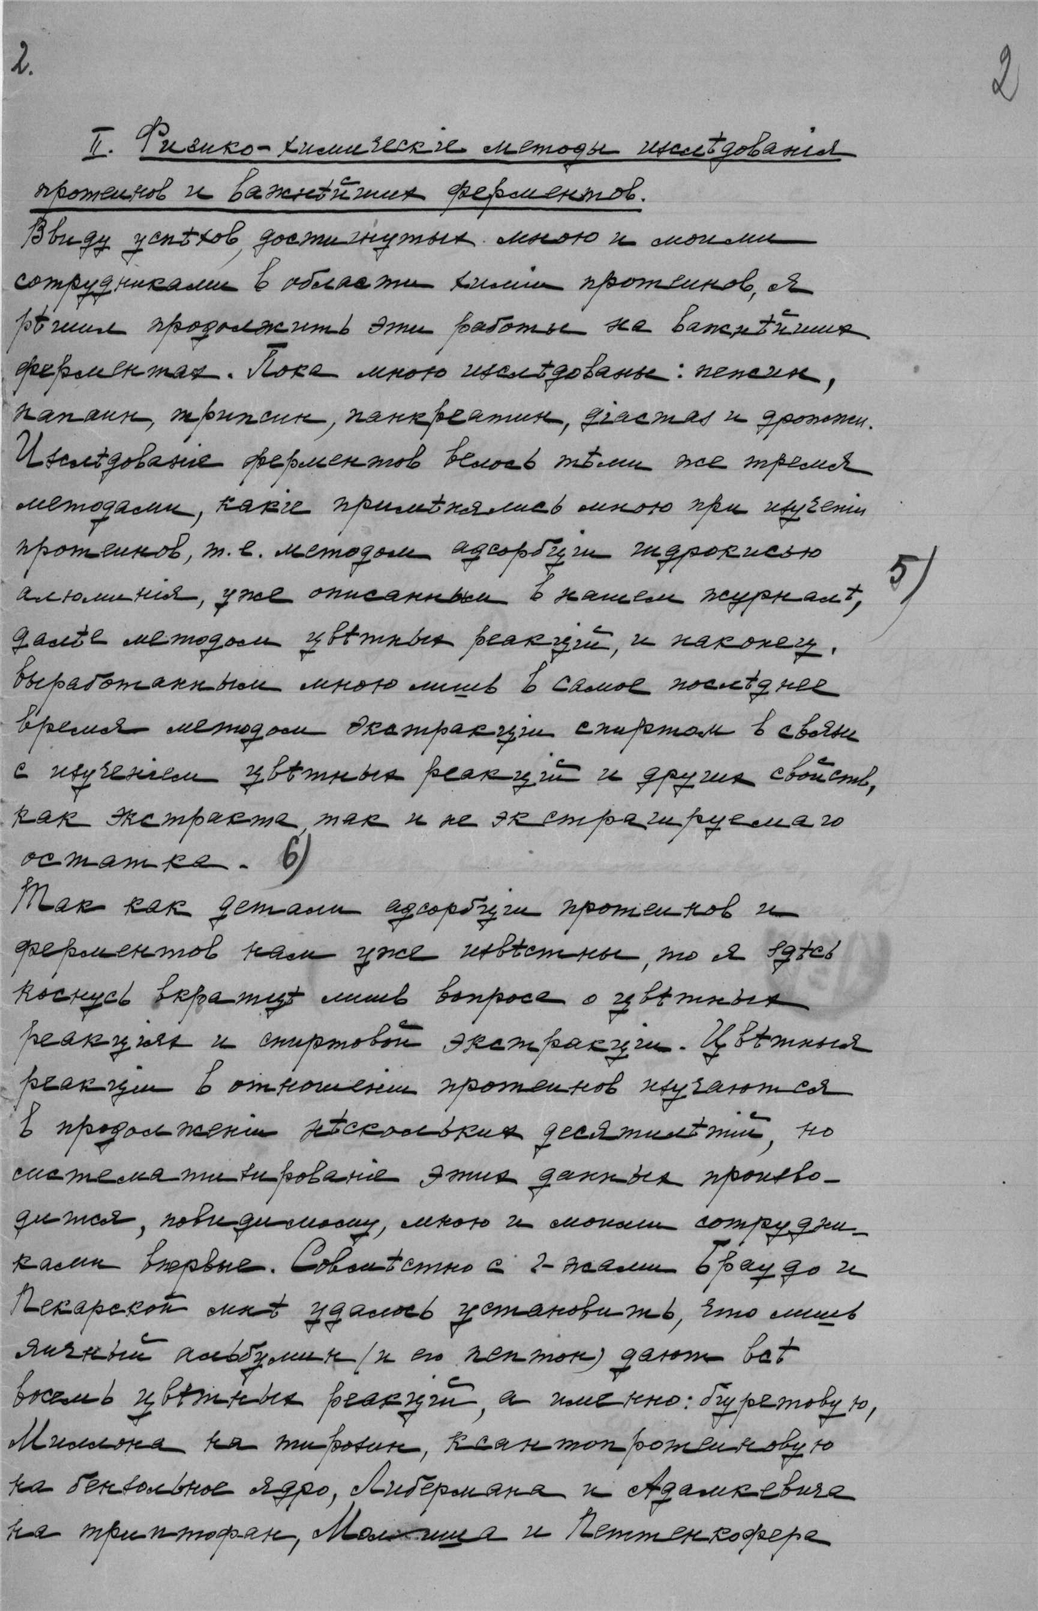 2.
2
II. Физико-химическіе методы изслѣдованія
протеинов и важнѣйших ферментов.
Ввиду успѣхов, достигнутых мною и моими
сотрудниками в области химіи протеинов, я
рѣшил продолжить эти работы на важнѣйших
ферментах. Пока мною изслѣдованы: пепсин,
папаин, трипсин, панкреатин, діастаз и дрожжи.
Изслѣдованіе ферментов велось тѣми же тремя
методами, какіе примѣнялись мною при изученіи
протеинов, т.е. методом адсорбціи гидрокисью
алюминія, уже описанным в нашем журналѣ, 5)
далѣе методом цвѣтных реакцій, и наконец,
выработанным мною лишь в самое послѣднее
время методом экстракціи спиртом в связи
с изученіем цвѣтных реакцій и других свойств,
как экстракта, так и не экстрагируемаго
остатка. 6)
Так как детали адсорбціи протеинов и
ферментов нам уже извѣстны, то я здѣсь
коснусь вкратцѣ лишь вопроса о цвѣтных
реакціях и спиртовой экстракціи. Цвѣтныя
реакціи в отношеніи протеинов изучаются
в продолженіи нѣскольких десятилѣтій, но
систематизированіе этих данных произво-
дится, повидимому, мною и моими сотрудни-
ками впервые. Совмѣстно с г-жами Браудо и
Пекарской мнѣ удалось установить, что лишь
яичный альбумин (и его пептон) дают всѣ
восемь цвѣтных реакцій, а именно: біуретовую,
Миллона на тирозин, ксантопротеиновую
на бензольное ядро, Либермана и Адамкевича
на триптофан, Молиша и Петтенкофера